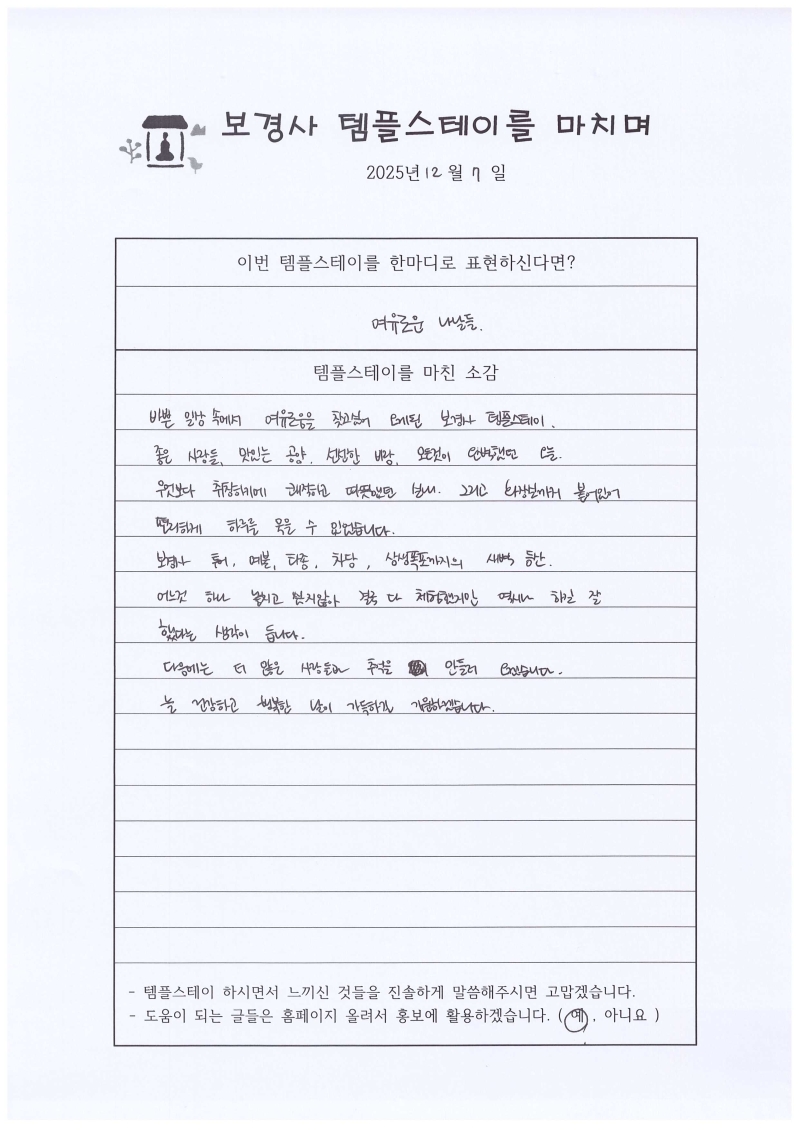 보경사 템플스테이를 마치며
2025년 12월 7일
이번 템플스테이를 한마디로 표현하신다면?
여유로운 나날들.
템플스테이를 마친 소감
바쁜 일상 속에서 여유로움을 찾고싶어 오게된 보경사 템플스테이.
좋은 사람들, 맛있는 공양, 선선한 바람, 모든것이 완벽했던 오늘.
무엇보다 취침하기에 쾌적하고 따뜻했던 실내. 그리고 화장실까지 붙어있어
편리하게 하루를 묵을 수 있었습니다.
보경사 투어, 예불, 타종, 차담, 상생폭포까지의 새벽 등산.
어느것 하나 놓치고 싶지않아 결국 다 체험했지만 역시나 하길 잘
했다는 생각이 듭니다.
다음에는 더 많은 사람들과 추억을 만들러 오겠습니다.
늘 건강하고 행복한 날이 가득하길 기원하겠습니다.
- 템플스테이 하시면서 느끼신 것들을 진솔하게 말씀해주시면 고맙겠습니다.
- 도움이 되는 글들은 홈페이지 올려서 홍보에 활용하겠습니다. ( 예 , 아니요 )